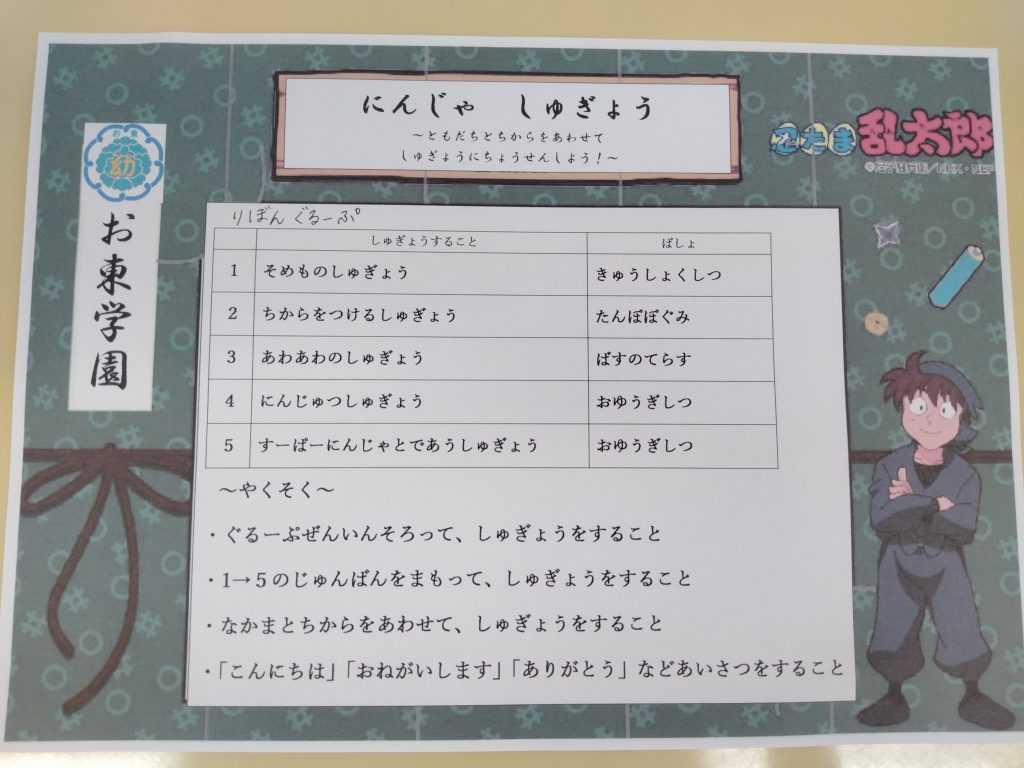 にんじゃ　しゅぎょう
～ともだちとちからをあわせて
しゅぎょうにちょうせんしよう！～
忍たま乱太郎
お東
幼
お東学園
りぼん ぐるーぷ
しゅぎょうすること ばしょ
1 そめものしゅぎょう きゅうしょくしつ
2 ちからをつけるしゅぎょう たんぽぽぐみ
3 あわあわのしゅぎょう ばすのてらす
4 にんじゅつしゅぎょう おゆうぎしつ
5 すーぱーにんじゃとであうしゅぎょう おゆうぎしつ
～やくそく～
・ぐるーぷぜんいんそろって、しゅぎょうをすること
・1→5のじゅんばんをまもって、しゅぎょうをすること
・なかまとちからをあわせて、しゅぎょうをすること
・「こんにちは」「おねがいします」「ありがとう」などあいさつをすること